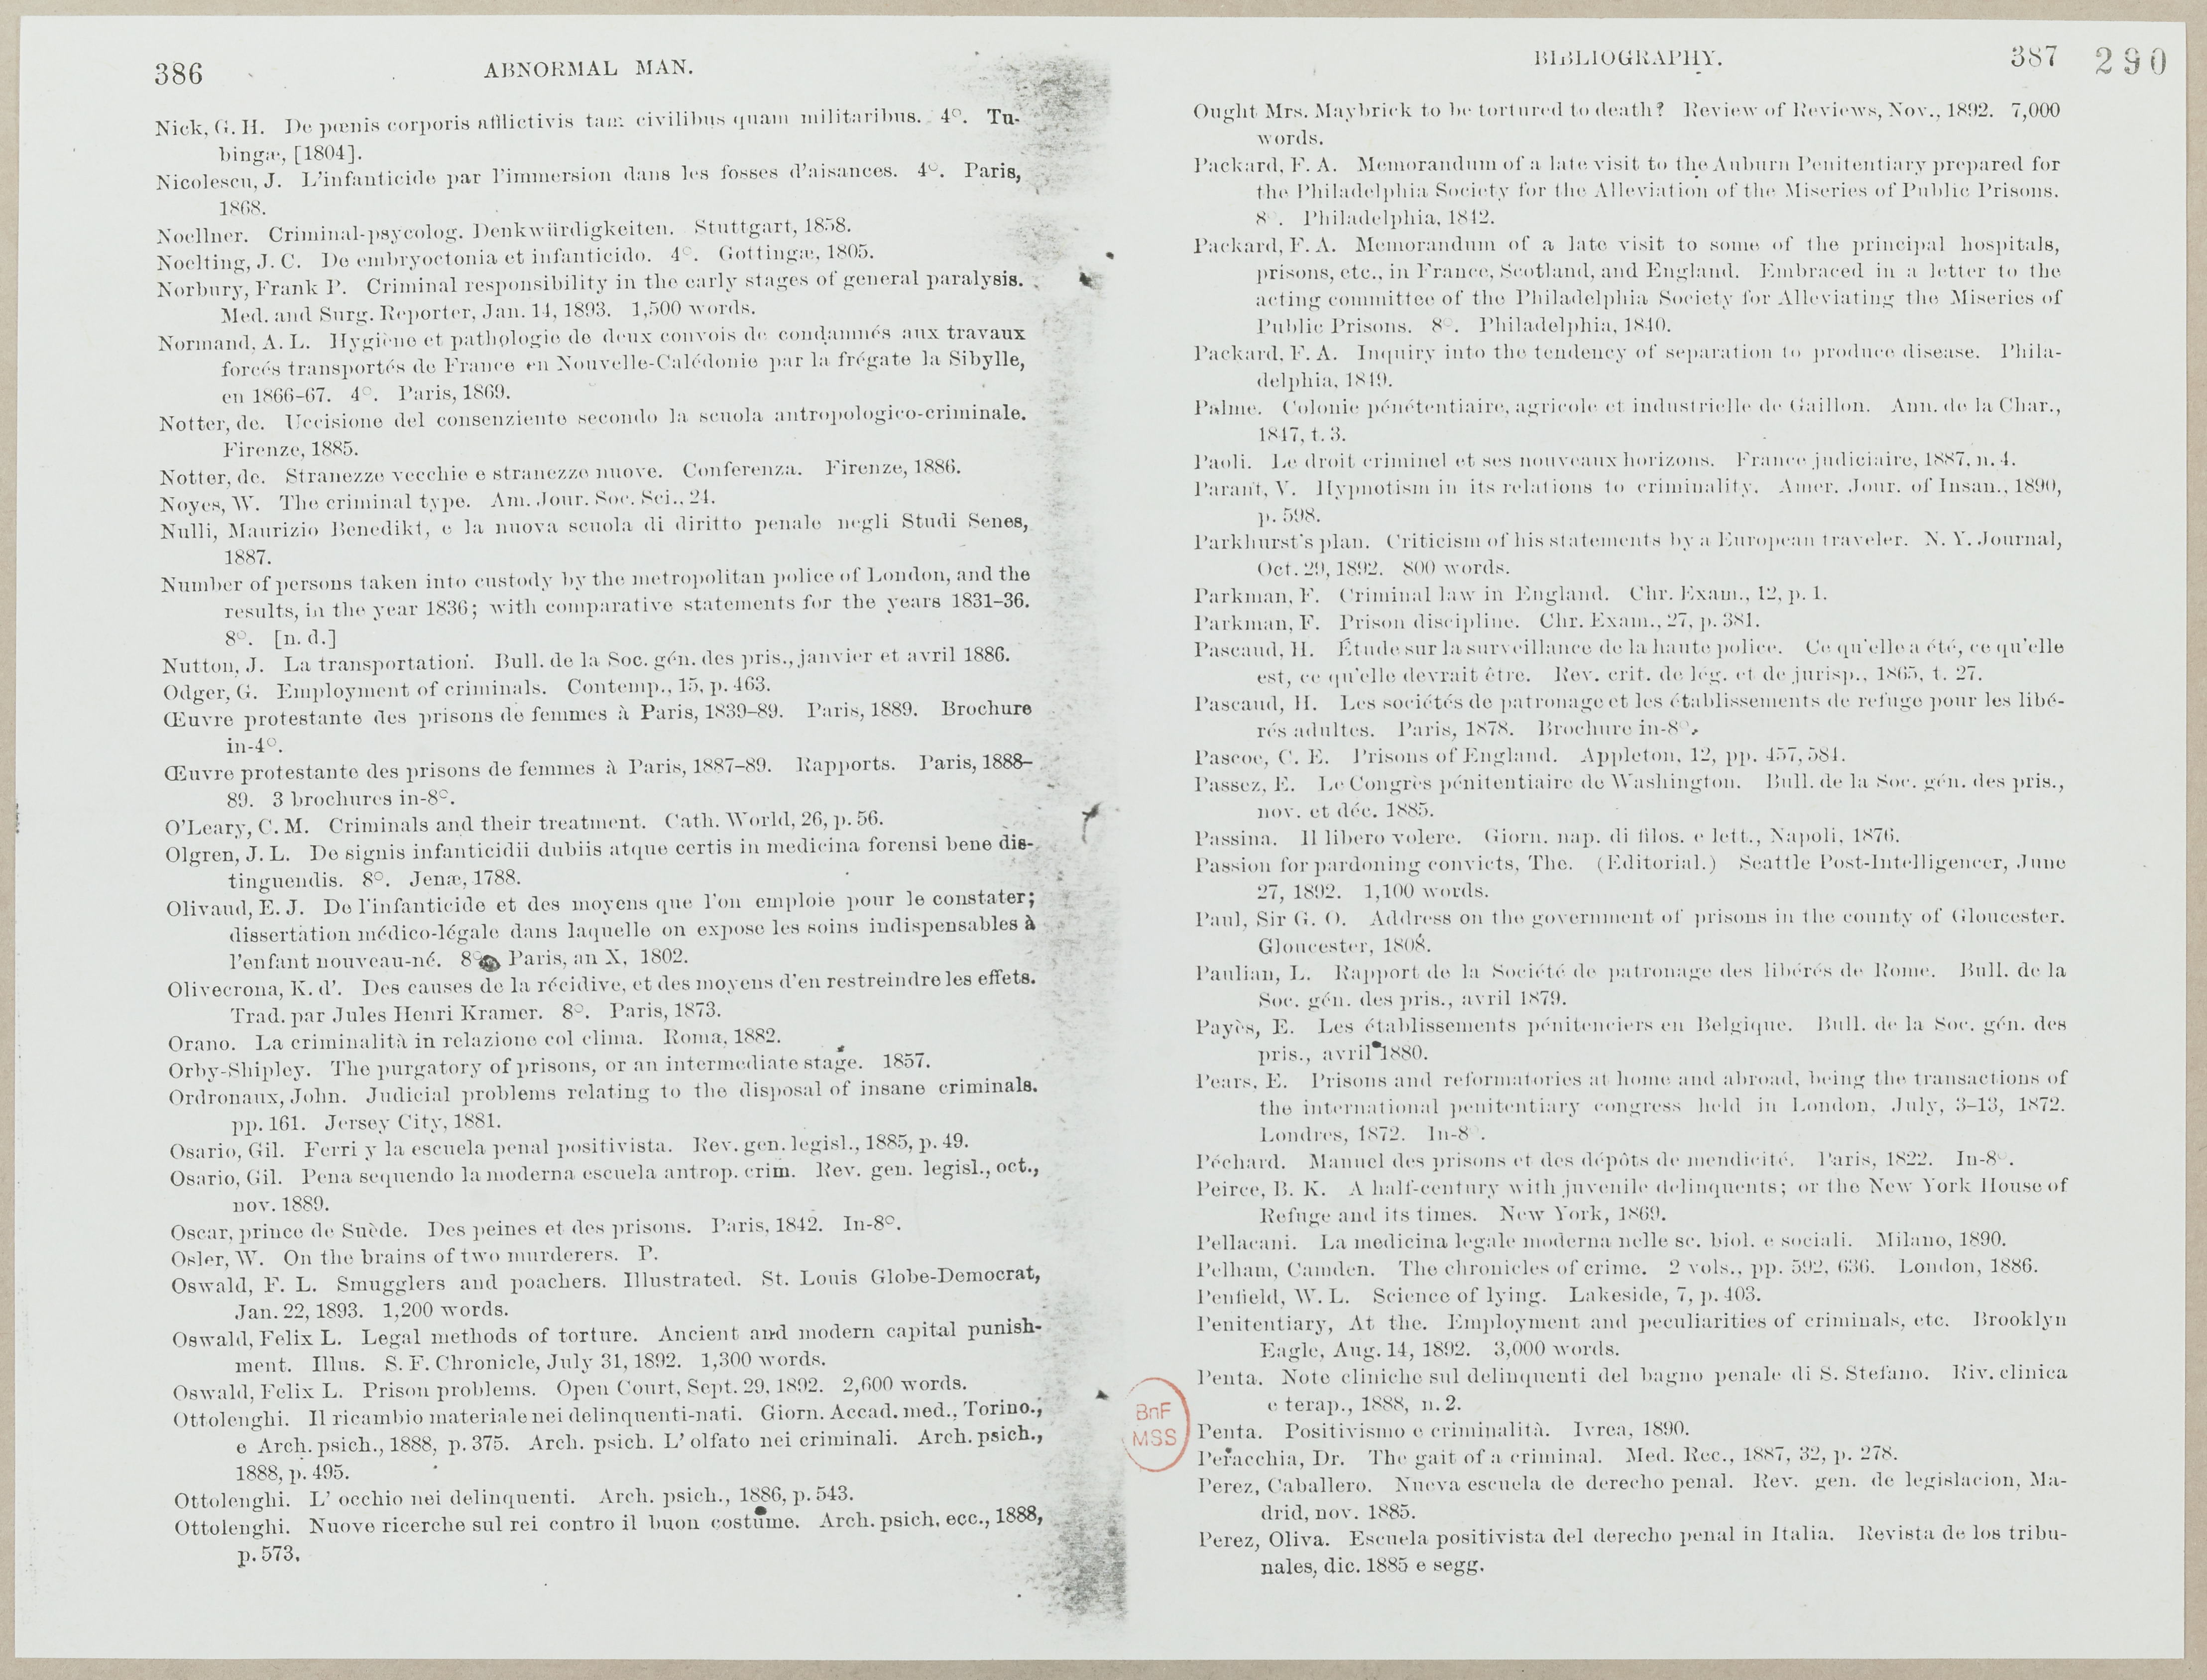 386 ABNORMAL MAN.
Nick, G. H. De pœnis corporis afflictivis tam civilibus quam militaribus. 4°. Tu-
bingæ, [1804].
Nicolescu, J. L'infanticide par l'immersion dans les fosses d'aisances. 4°. Paris,
1868.
Noellner. Criminal-psycolog. Denkwürdigkeiten. Stuttgart, 1858.
Noelting, J. C. De embryoctonia et infanticido. 4°. Gottingæ, 1805.
Norbury, Frank P. Criminal responsibility in the early stages of general paralysis.
Med. and Surg. Reporter, Jan. 14, 1893. 1,500 words.
Normand, A. L. Hygiène et pathologie de deux convois de condamnés aux travaux
forcés transportés de France en Nouvelle-Calédonie par la frégate la Sibylle,
en 1866-67. 4°. Paris, 1869.
Notter, de. Uccisione del consenziente secondo la scuola antropologico-criminale.
Firenze, 1885.
Notter, de. Stranezze vecchie e stranezze nuove. Conferenza. Firenze, 1886.
Noyes, W. The criminal type. Am. Jour. Soc. Sci., 24.
Nulli, Maurizio Benedikt, e la nuova scuola di diritto penale negli Studi Senes,
1887.
Number of persons taken into custody by the metropolitan police of London, and the
results, in the year 1836; with comparative statements for the years 1831-36.
8°. [n. d.]
Nutton, J. La transportation. Bull. de la Soc. gén. des pris., janvier et avril 1886.
Odger, G. Employment of criminals. Contemp., 15, p. 463.
Œuvre protestante des prisons de femmes à Paris, 1839-89. Paris, 1889. Brochure
in-4°.
Œuvre protestante des prisons de femmes à Paris, 1887-89. Rapports. Paris, 1888-
89. 3 brochures in-8°.
O'Leary, C. M. Criminals and their treatment. Cath. World, 26, p. 56.
Olgren, J. L. De signis infanticidii dubiis atque certis in medicina forensi bene dis-
tinguendis. 8°. Jenæ, 1788.
Olivaud, E. J. De l'infanticide et des moyens que l'on emploie pour le constater;
dissertation médico-légale dans laquelle on expose les soins indispensables à
l'enfant nouveau-né. 8° Paris, an X, 1802.
Olivecrona, K. d'. Des causes de la récidive, et des moyens d'en restreindre les effets.
Trad. par Jules Henri Kramer. 8°. Paris, 1873.
Orano. La criminalità in relazione col clima. Roma, 1882.
Orby-Shipley. The purgatory of prisons, or an intermediate stage. 1857.
Ordronaux, John. Judicial problems relating to the disposal of insane criminals.
pp. 161. Jersey City, 1881.
Osario, Gil. Ferri y la escuela penal positivista. Rev. gen. legisl., 1885, p. 49.
Osario, Gil. Pena sequendo la moderna escuela antrop. crim. Rev. gen. legisl., oct.,
nov. 1889.
Oscar, prince de Suède. Des peines et des prisons. Paris, 1842. In-8°.
Osler, W. On the brains of two murderers. P.
Oswald, F. L. Smugglers and poachers. Illustrated. St. Louis Globe-Democrat,
Jan. 22, 1893. 1,200 words.
Oswald, Felix L. Legal methods of torture. Ancient and modern capital punish-
ment. Illus. S. F. Chronicle, July 31, 1892. 1,300 words.
Oswald, Felix L. Prison problems. Open Court, Sept. 29, 1892. 2,600 words.
Ottolenghi. Il ricambio materiale nei delinquenti-nati. Giorn. Accad. med., Torino.,
e Arch. psich., 1888, p. 375. Arch. psich. L' olfato nei criminali. Arch. psich.,
1888, p. 495.
Ottolenghi. L' occhio nei delinquenti. Arch. psich., 1886, p. 543.
Ottolenghi. Nuove ricerche sul rei contro il buon costume. Arch. psich. ecc., 1888,
p. 573.
BIBLIOGRAPHY. 387 290
Ought Mrs. Maybrick to be tortured to death? Review of Reviews, Nov., 1892. 7,000
words.
Packard, F. A. Memorandum of a late visit to the Auburn Penitentiary prepared for
the Philadelphia Society for the Alleviation of the Miseries of Public Prisons.
8°. Philadelphia, 1842.
Packard, F. A. Memorandum of a late visit to some of the principal hospitals,
prisons, etc., in France, Scotland, and England. Embraced in a letter to the
acting committee of the Philadelphia Society for Alleviating the Miseries of
Public Prisons. 8°. Philadelphia, 1840.
Packard, F. A. Inquiry into the tendency of separation to produce disease. Phila-
delphia, 1849.
Palme. Colonie pénétentiaire, agricole et industrielle de Gaillon. Ann. de la Char.,
1847, t. 3.
Paoli. Le droit criminel et ses nouveaux horizons. France judiciaire, 1887, n. 4.
Parant, V. Hypnotism in its relations to criminality. Amer. Jour. of Insan., 1890,
p. 598.
Parkhurst's plan. Criticism of his statements by a European traveler. N. Y. Journal,
Oct. 29, 1892. 800 words.
Parkman, F. Criminal law in England. Chr. Exam., 12, p. 1.
Parkman, F. Prison discipline. Chr. Exam., 27, p. 381.
Pascaud, H. Étude sur la surveillance de la haute police. Ce qu'elle a été, ce qu'elle
est, ce qu'elle devrait être. Rev. crit. de lég. et de jurisp., 1865, t. 27.
Pascaud, H. Les sociétés de patronage et les établissements de refuge pour les libé-
rés adultes. Paris, 1878. Brochure in-8°.
Pascoe, C. E. Prisons of England. Appleton, 12, pp. 457, 584.
Passez, E. Le Congrès pénitentiaire de Washington. Bull. de la Soc. gén. des pris.,
nov. et déc. 1885.
Passina. Il libero volere. Giorn. nap. di filos. e lett., Napoli, 1876.
Passion for pardoning convicts, The. (Editorial.) Seattle Post-Intelligencer, June
27, 1892. 1,100 words.
Paul, Sir G. O. Address on the government of prisons in the county of Gloucester.
Gloucester, 1808.
Paulian, L. Rapport de la Société de patronage des libérés de Rome. Bull. de la
Soc. gén. des pris., avril 1879.
Payès, E. Les établissements pénitenciers en Belgique. Bull. de la Soc. gén. des
pris., avril 1880.
Pears, E. Prisons and reformatories at home and abroad, being the transactions of
the international penitentiary congress held in London, July, 3-13, 1872.
Londres, 1872. In-8°.
Péchard. Manuel des prisons et des dépôts de mendicité. Paris, 1822. In-8°.
Peirce, B. K. A half-century with juvenile delinquents; or the New York House of
Refuge and its times. New York, 1869.
Pellacani. La medicina legale moderna nelle sc. biol. e sociali. Milano, 1890.
Pelham, Camden. The chronicles of crime. 2 vols., pp. 592, 636. London, 1886.
Penfield, W. L. Science of lying. Lakeside, 7, p. 403.
Penitentiary, At the. Employment and peculiarities of criminals, etc. Brooklyn
Eagle, Aug. 14, 1892. 3,000 words.
Penta. Note cliniche sul delinquenti del bagno penale di S. Stefano. Riv. clinica
e terap., 1888, n. 2.
Penta. Positivismo e criminalità. Ivrea, 1890.
Peracchia, Dr. The gait of a criminal. Med. Rec., 1887, 32, p. 278.
Perez, Caballero. Nueva escuela de derecho penal. Rev. gen. de legislacion, Ma-
drid, nov. 1885.
Perez, Oliva. Escuela positivista del derecho penal in Italia. Revista de los tribu-
nales, dic. 1885 e segg.
BnF
MSS